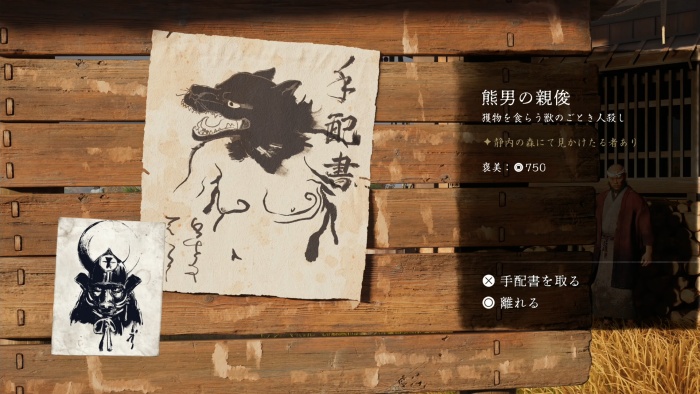 手配書
熊男の親俊
獲物を食らう獣のごとき人殺し
静内の森にて見かけたる者あり
褒美：750
手配書を取る
離れる